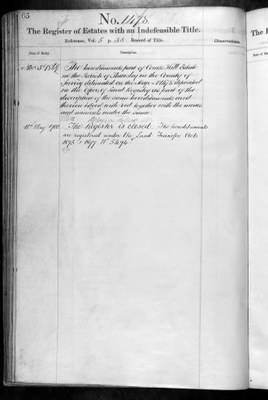 65
No. 1478.
The Register of Estates with an Indefeasible Title.
Reference, Vol. 5 p. Record of Title.
Date of Entry.
Description.
Observations.
The hereditaments part of Combe Hill Estate
in the Parish of in the County of
Surrey delineated on the Map 1478 deposited
in the Office of Land Registry as part of the
description of the same hereditaments and
therein edged with red together with the mines
and minerals under the same
The Register is closed. The hereditaments
are registered under the Land Transfer Acts
1875 & 1897 No.